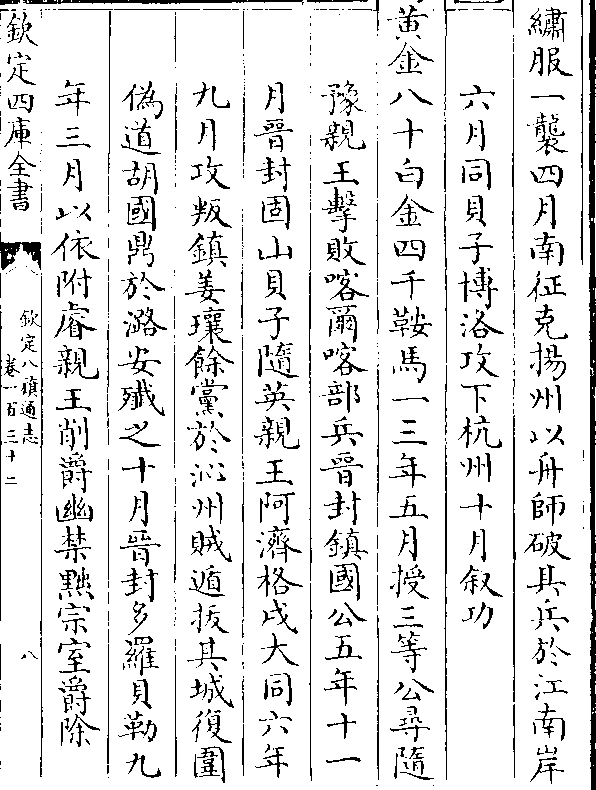 繡服一襲四月南征克揚州以舟師破其兵於江南岸
六月同貝子博洛攻下杭州十月叙功
黃金八十白金四千鞍馬一三年五月授三等公尋隨
豫親王擊敗喀爾喀部兵晉封鎮國公五年十一
月晉封固山貝子隨英親王阿濟格戍大同六年
九月攻叛鎮姜瓖餘黨於沁州賊遁拔其城復圍
偽道胡國鼎於潞安殱之十月晉封多羅貝勒九
年三月以依附睿親王削爵幽禁黜宗室爵除
欽定四庫全書
欽定八旗通志
卷一百三十二
八